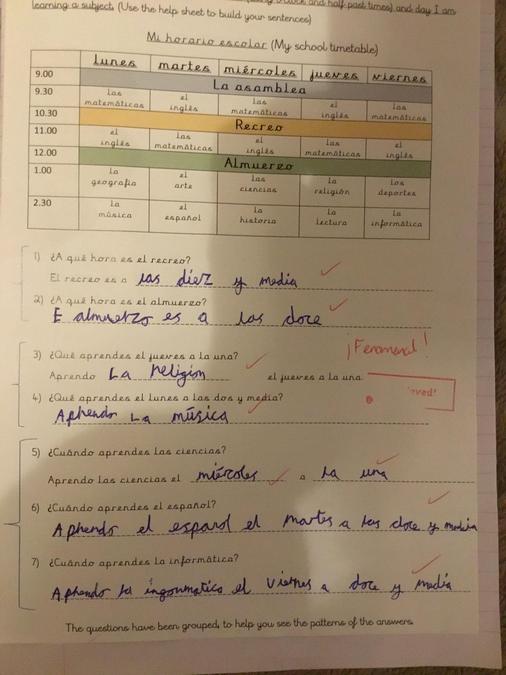 o'clock and half past times) and day I am
learning a subject. (Use the help sheet to build your sentences)
Mi horario escolar (My school timetable)
lunes martes miércoles jueves viernes
9.00 La asamblea
9.30 las matemáticas el inglés las matemáticas el inglés las matemáticas
10.30 Recreo
11.00 el inglés las matemáticas el inglés las matemáticas el inglés
12.00 Almuerzo
1.00 la geografía el arte las ciencias la religión los deportes
2.30 la música el español la historia la lectura la informática
1) ¿A qué hora es el recreo?
El recreo es a las diez y media
2) ¿A qué hora es el almuerzo?
E almuerzo es a las doce
¡Fenomenal!
3) ¿Qué aprendes el jueves a la una?
Aprendo La religion el jueves a la una.
4) ¿Qué aprendes el lunes a las dos y media?
Aprendo La música
5) ¿Cuándo aprendes las ciencias?
Aprendo las ciencias el miércoles a la una
6) ¿Cuándo aprendes el español?
Aprendo el espanol el martes a las doce y media
7) ¿Cuándo aprendes la informática?
Aprendo la ingoumatica el viernes a doce y media
The questions have been grouped, to help you see the patterns of the answers.